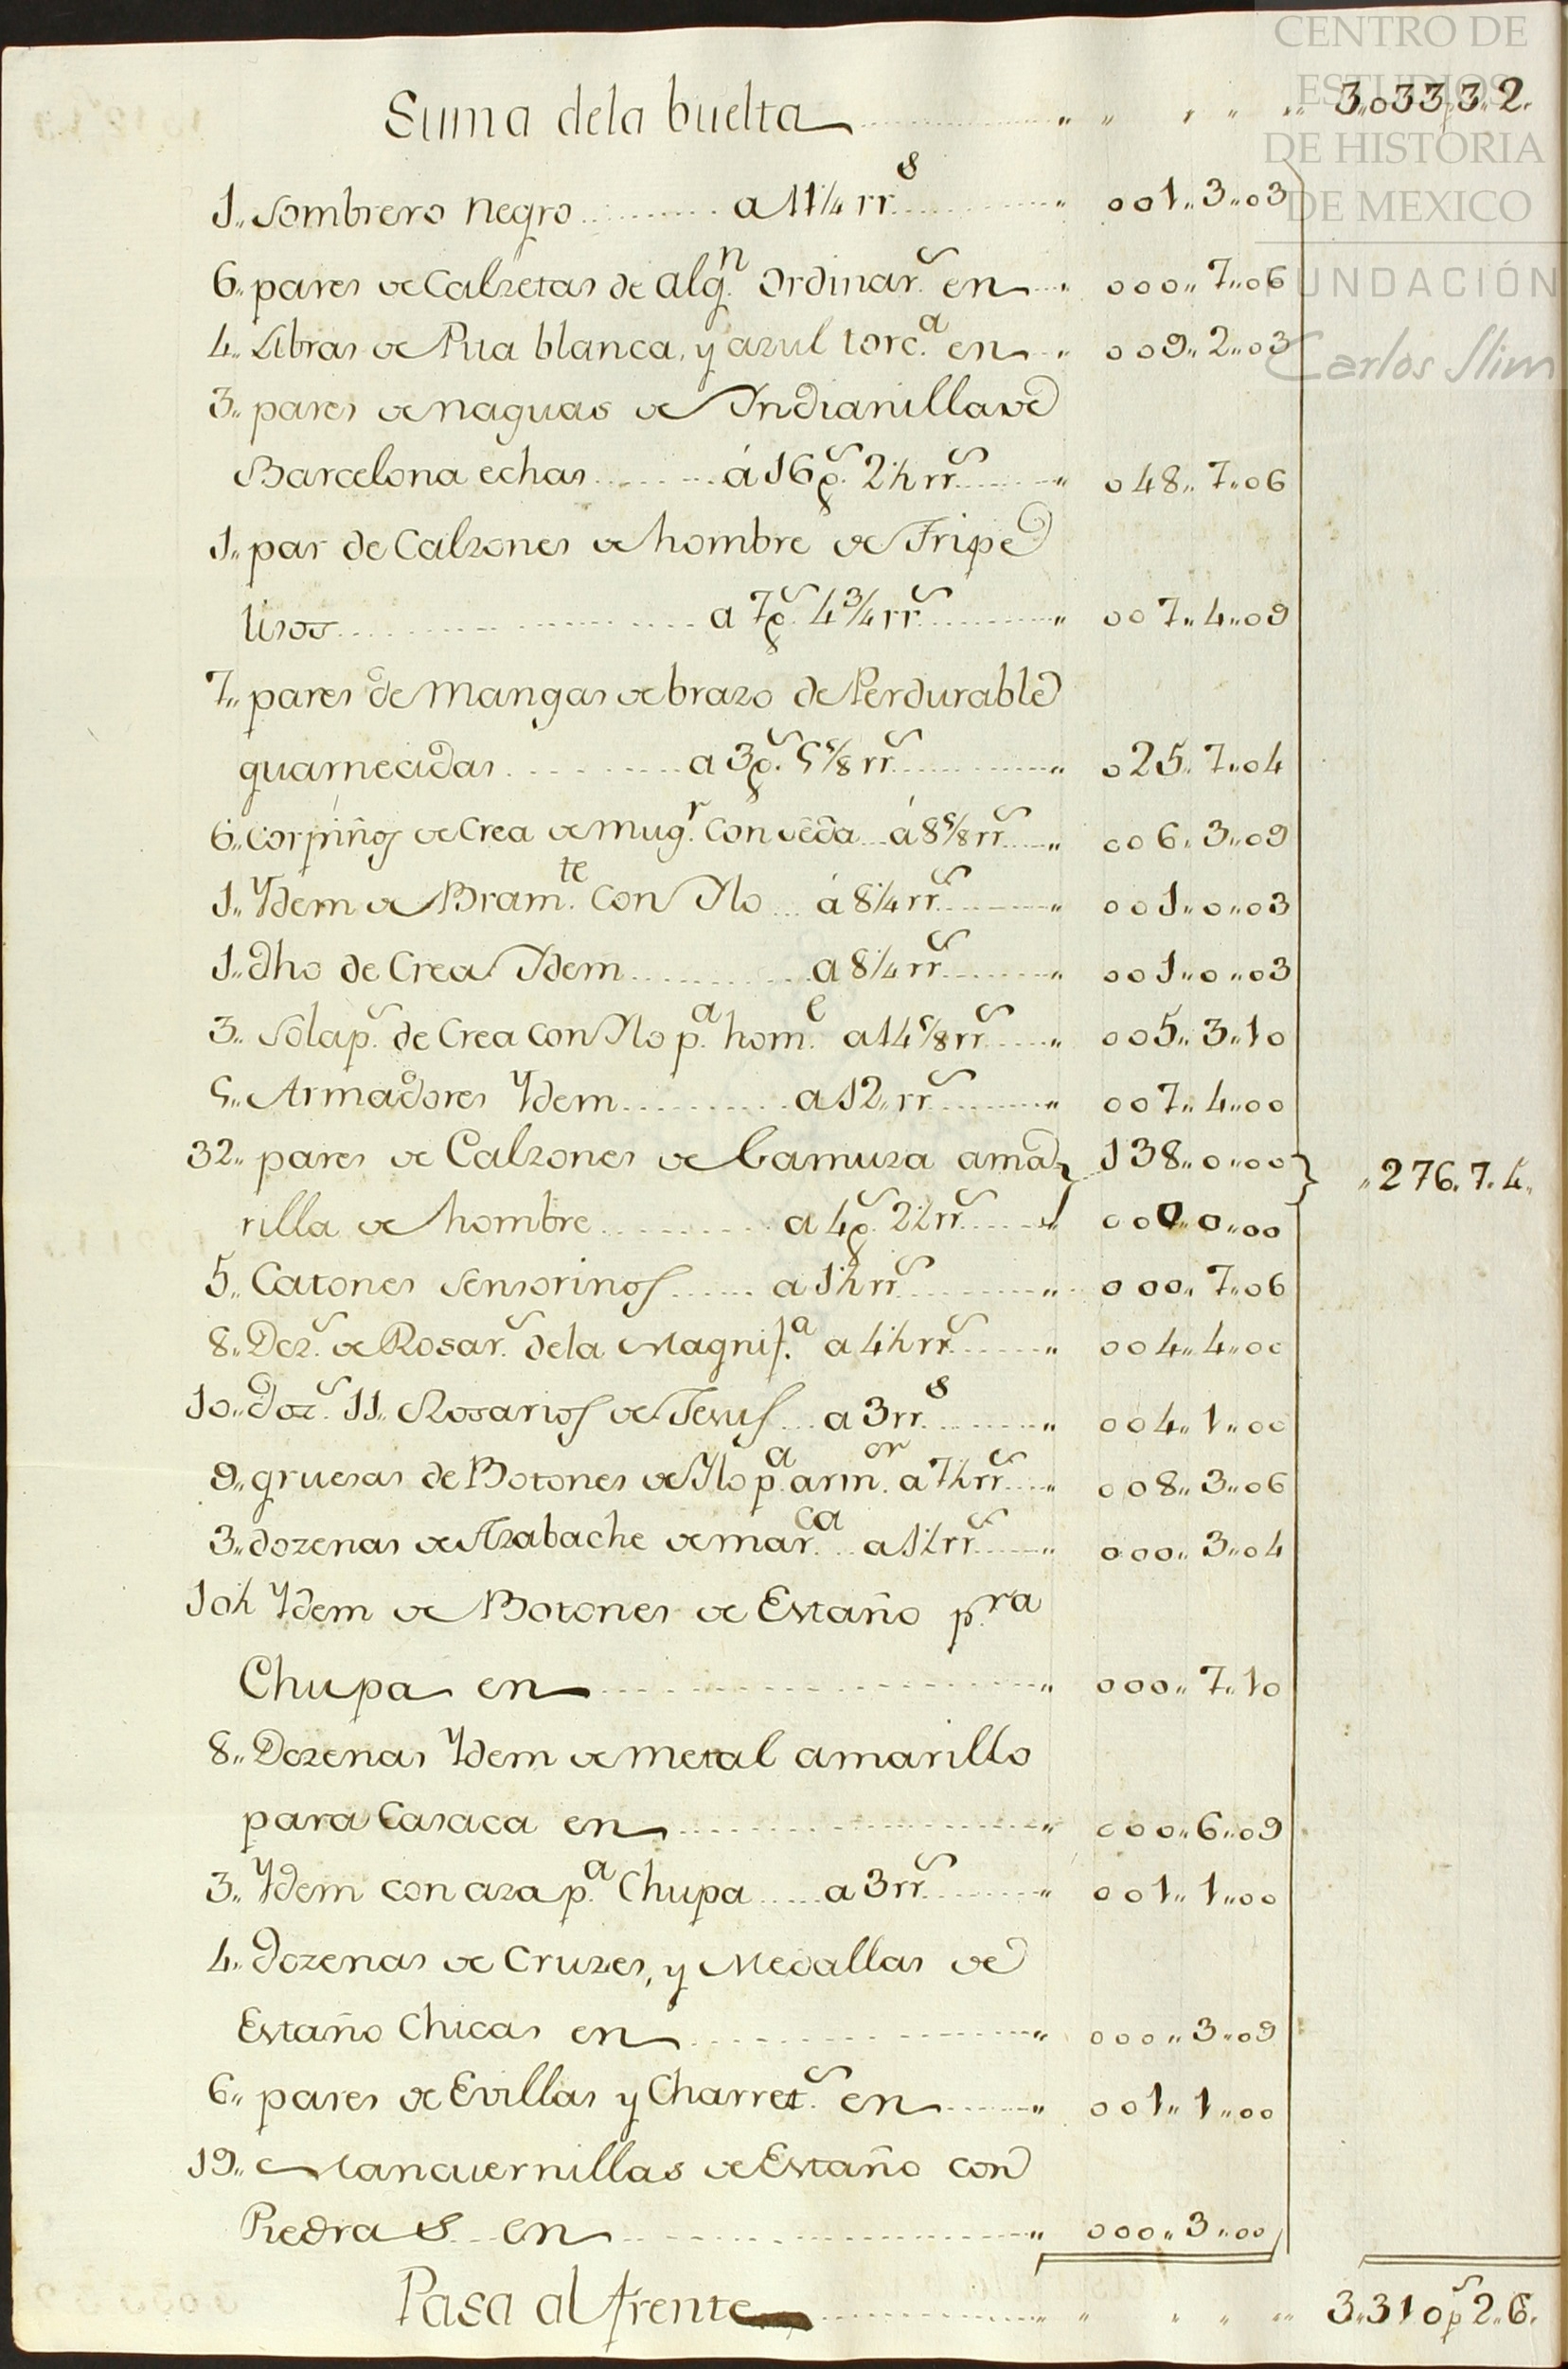 CENTRO DE
ESTUDIOS
DE HISTORIA
DE MEXICO
FUNDACIÓN
Carlos Slim
Suma dela buelta 3„033„3„2.
1„ Sombrero negro a 11¼ rr.s 001„3„03
6„ pares de Calzetas de alg.n Ordinar.s en 000„7„06
4„ Libras de Pita blanca, y azul torc.a en 009„2„03
3„ pares de naguas de Indianilla de
Barcelona echas á 16p.s 2½ rr.s 048„7„06
1„ par de Calzones de hombre de Tripe
lisos a 7p.s 4¾ rr.s 007„4„09
7„ pares de mangas de brazo de Perdurable
guarnecidas a 3p.s 5⅝ rr.s 025„7„04
6„ Corpiños de Crea de mug.r con seda á 8⅝ rr.s 006„3„09
1„ Ydem de Bram.te con Ylo á 8¼ rr.s 001„0„03
1„ dho de Crea Ydem a 8¼ rr.s 001„0„03
3„ Solap.s de Crea con Ylo p.a hom.e a 14⅝ rr.s 005„3„10
5„ Armadores Ydem a 12„ rr.s 007„4„00
32„ pares de Calzones de Gamuza ama 138„0„00 „276„7„4„
rilla de hombre a 4p.s 2½ rr.s 000„0„00
5„ Catones Sensorinos a 1½ rr.s 000„7„06
8„ Doz.s de Rosar.s dela Magnif.a a 4½ rr.s 004„4„00
10„ Doz.s 11„ Rosarios de Jesus a 3 rr.s 004„1„00
9„ gruesas de Botones de Ylo p.a arm.or a 7½ rr.s 008„3„06
3„ dozenas de Azabache de mar.ca a 1½ rr.s 000„3„04
10½ Ydem de Botones de Estaño p.ra
Chupa en 000„7„10
8„ Dozenas Ydem de metal amarillo
para Casaca en 000„6„09
3„ Ydem con aza p.a Chupa a 3 rr.s 001„1„00
4„ Dozenas de Cruzes, y Medallas de
Estaño Chicas en 000„3„09
6„ pares de Evillas y Charret.s en 001„1„00
19„ Mancuernillas de Estaño con
Piedras en 000„3„00
Pasa al frente 3„310p.s 2„6„